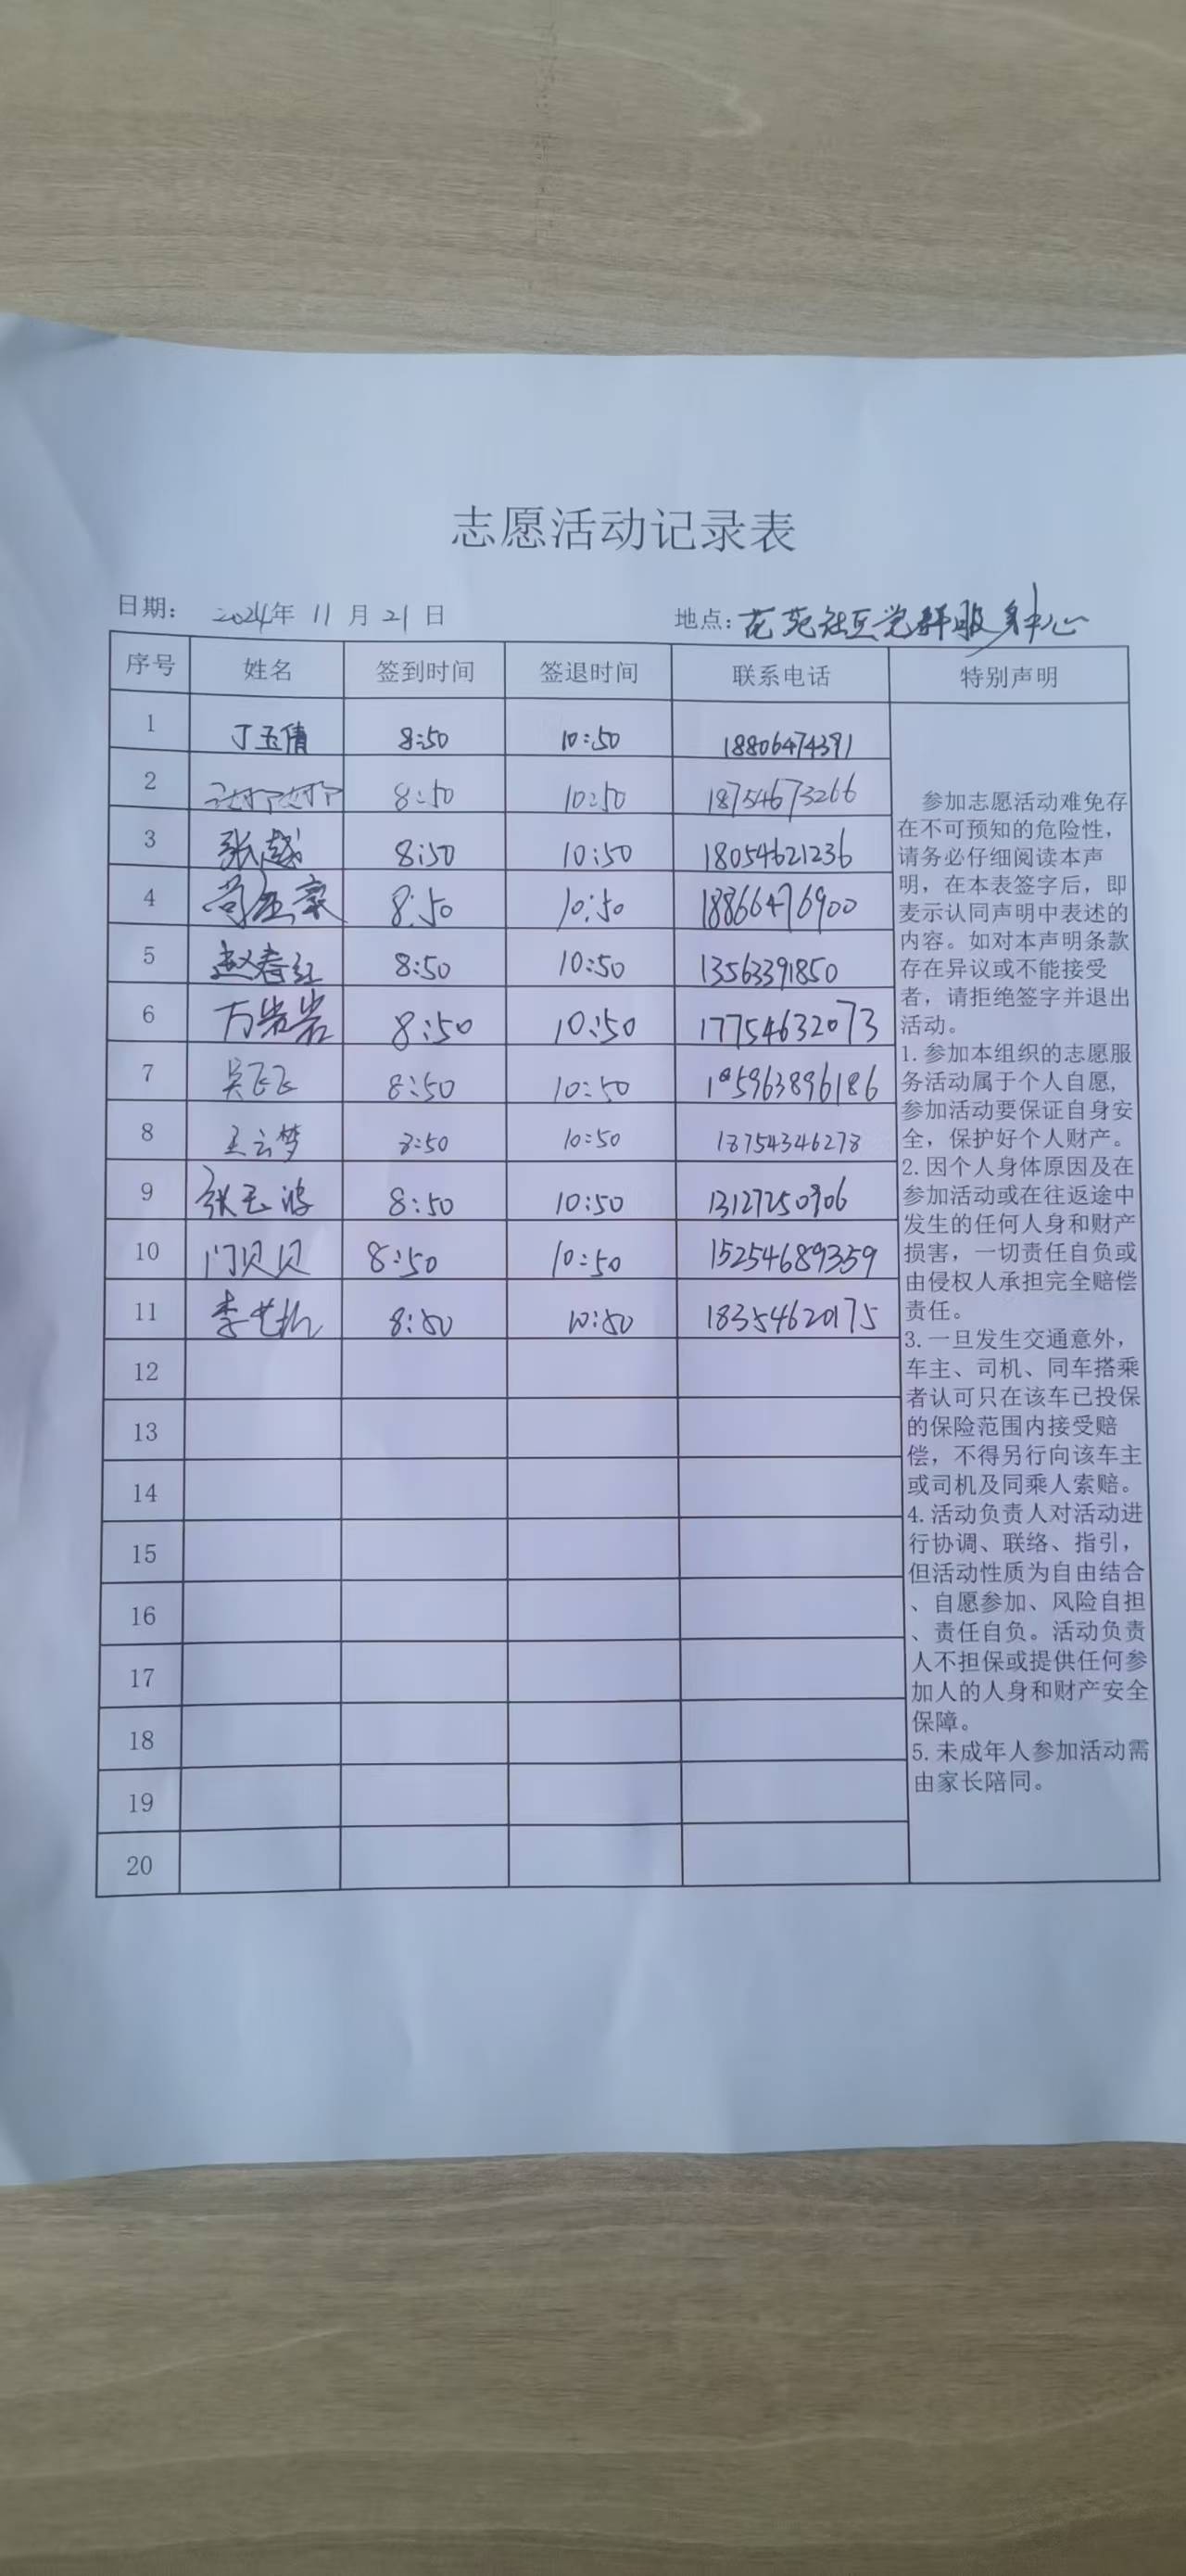 志愿活动记录表
日期: 2024年 11 月 21 日 地点: 花苑社区党群服务中心
序号 姓名 签到时间 签退时间 联系电话 特别声明
1 丁玉倩 8:50 10:50 18806474391
2 8:50 10:50 18754673266
3 张越 8:50 10:50 18054621236
4 8:50 10:50 18866476900
5 赵春红 8:50 10:50 13563391850
6 万岩岩 8:50 10:50 17754632073
7 吴飞飞 8:50 10:50 15963896186
8 王云梦 8:50 10:50 18754346278
9 张玉波 8:50 10:50 13127250906
10 门贝贝 8:50 10:50 15254689359
11 李 8:50 10:50 18354620175
12
13
14
15
16
17
18
19
20
参加志愿活动难免存
在不可预知的危险性，
请务必仔细阅读本声
明，在本表签字后，即
麦示认同声明中表述的
内容。如对本声明条款
存在异议或不能接受
者，请拒绝签字并退出
活动。
1. 参加本组织的志愿服
务活动属于个人自愿，
参加活动要保证自身安
全，保护好个人财产。
2. 因个人身体原因及在
参加活动或在往返途中
发生的任何人身和财产
损害，一切责任自负或
由侵权人承担完全赔偿
责任。
3. 一旦发生交通意外，
车主、司机、同车搭乘
者认可只在该车已投保
的保险范围内接受赔
偿，不得另行向该车主
或司机及同乘人索赔。
4. 活动负责人对活动进
行协调、联络、指引，
但活动性质为自由结合
、自愿参加、风险自担
、责任自负。活动负责
人不担保或提供任何参
加人的人身和财产安全
保障。
5. 未成年人参加活动需
由家长陪同。